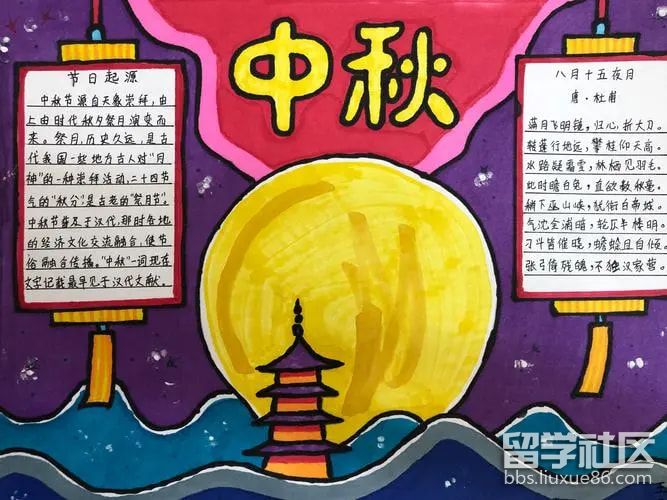 中秋
节日起源
中秋节源自天象崇拜,由
上古时代秋夕祭月演变而
来。祭月,历史久远,是古
代我国一些地方古人对"月
神"的一种崇拜活动,二十四节
气的"秋分",是古老的"祭月节"。
中秋节普及于汉代,那时各地
的经济文化交流融合,使节
俗融合传播。"中秋"一词现在
文字记载最早见于汉代文献。
八月十五夜月
唐·杜甫
满月飞明镜,归心折大刀。
转蓬行地远,攀桂仰天高。
水路疑霜雪,林栖见羽毛。
此时瞻白兔,直欲数秋毫。
稍下巫山峡,犹衔白帝城。
气沈全浦暗,轮仄半楼明。
刁斗皆催晓,蟾蜍且自倾。
张弓倚残魄,不独汉家营。
留学社区
bbs.liuxue86.com